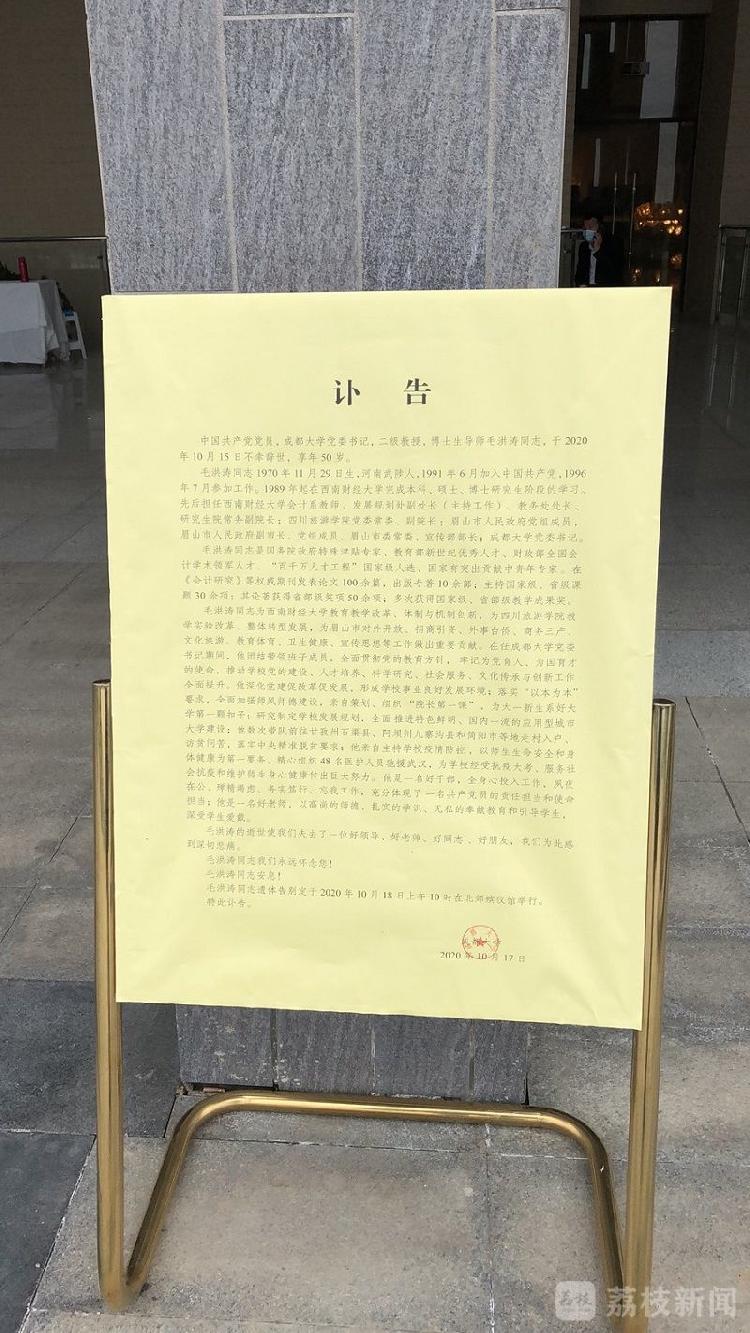 讣 告
中国共产党党员，成都大学党委书记，二级教授，博士生导师毛洪涛同志，于 2020
年 10 月 15 日不幸辞世，享年 50 岁。
毛洪涛同志 1970 年 11 月 29 日生，河南武陟人，1991 年 6 月加入中国共产党，1996
年 7 月参加工作。1989 年起在西南财经大学完成本科、硕士、博士研究生阶段的学习。
先后担任西南财经大学会计系教师、发展规划处副处长（主持工作）、教务处处长、
研究生院常务副院长；四川旅游学院党委常委、副院长；眉山市人民政府党组成员，
眉山市人民政府副市长、党组成员，眉山市委常委、宣传部部长；成都大学党委书记。
毛洪涛同志是国务院政府特殊津贴专家、教育部新世纪优秀人才、财政部全国会
计学术领军人才、“百千万人才工程”国家级人选、国家有突出贡献中青年专家。在
《会计研究》等权威期刊发表论文 100 余篇，出版专著 10 余部；主持国家级、省级课
题 30 余项；其论著获得省部级奖项 50 余项；多次获得国家级、省部级教学成果奖。
毛洪涛同志为西南财经大学教育教学改革、体制与机制创新，为四川旅游学院教
学实验改革、整体转型发展，为眉山市对外开放、招商引资、外事台侨、商务三产、
文化旅游、教育体育、卫生健康、宣传思想等工作做出重要贡献。在任成都大学党委
书记期间，他团结带领班子成员，全面贯彻党的教育方针，牢记为党育人、为国育才
的使命，推动学校党的建设、人才培养、科学研究、社会服务、文化传承与创新工作
全面提升。他深化党建促改革促发展，形成学校事业良好发展环境；落实“以本为本”
要求，全面加强师风师德建设，亲自策划、组织“院长第一课”，为大一新生系好大
学第一颗扣子；研究制定学校发展规划，全面推进特色鲜明、国内一流的应用型城市
大学建设；他数次带队前往甘孜州石渠县、阿坝州九寨沟县和简阳市等地走村入户、
访贫问苦，落实中央精准脱贫要求；他亲自主持学校疫情防控，以师生生命安全和身
体健康为第一要务，精心组织 48 名医护人员驰援武汉，为学校经受抗疫大考、服务社
会抗疫和维护师生身心健康付出巨大努力。他是一名好干部，全身心投入工作，夙夜
在公、殚精竭虑、务实笃行、忘我工作，充分体现了一名共产党员的责任担当和使命
担当；他是一名好老师，以高尚的师德、扎实的学识、无私的奉献教育和引导学生，
深受学生爱戴。
毛洪涛的逝世使我们失去了一位好领导、好老师、好同志、好朋友，我们为此感
到深切悲痛。
毛洪涛同志我们永远怀念您！
毛洪涛同志安息！
毛洪涛同志遗体告别定于 2020 年 10 月 18 日上午 10 时在北郊殡仪馆举行。
特此讣告。
成都大学
2020 年 10 月 17 日
荔枝新闻